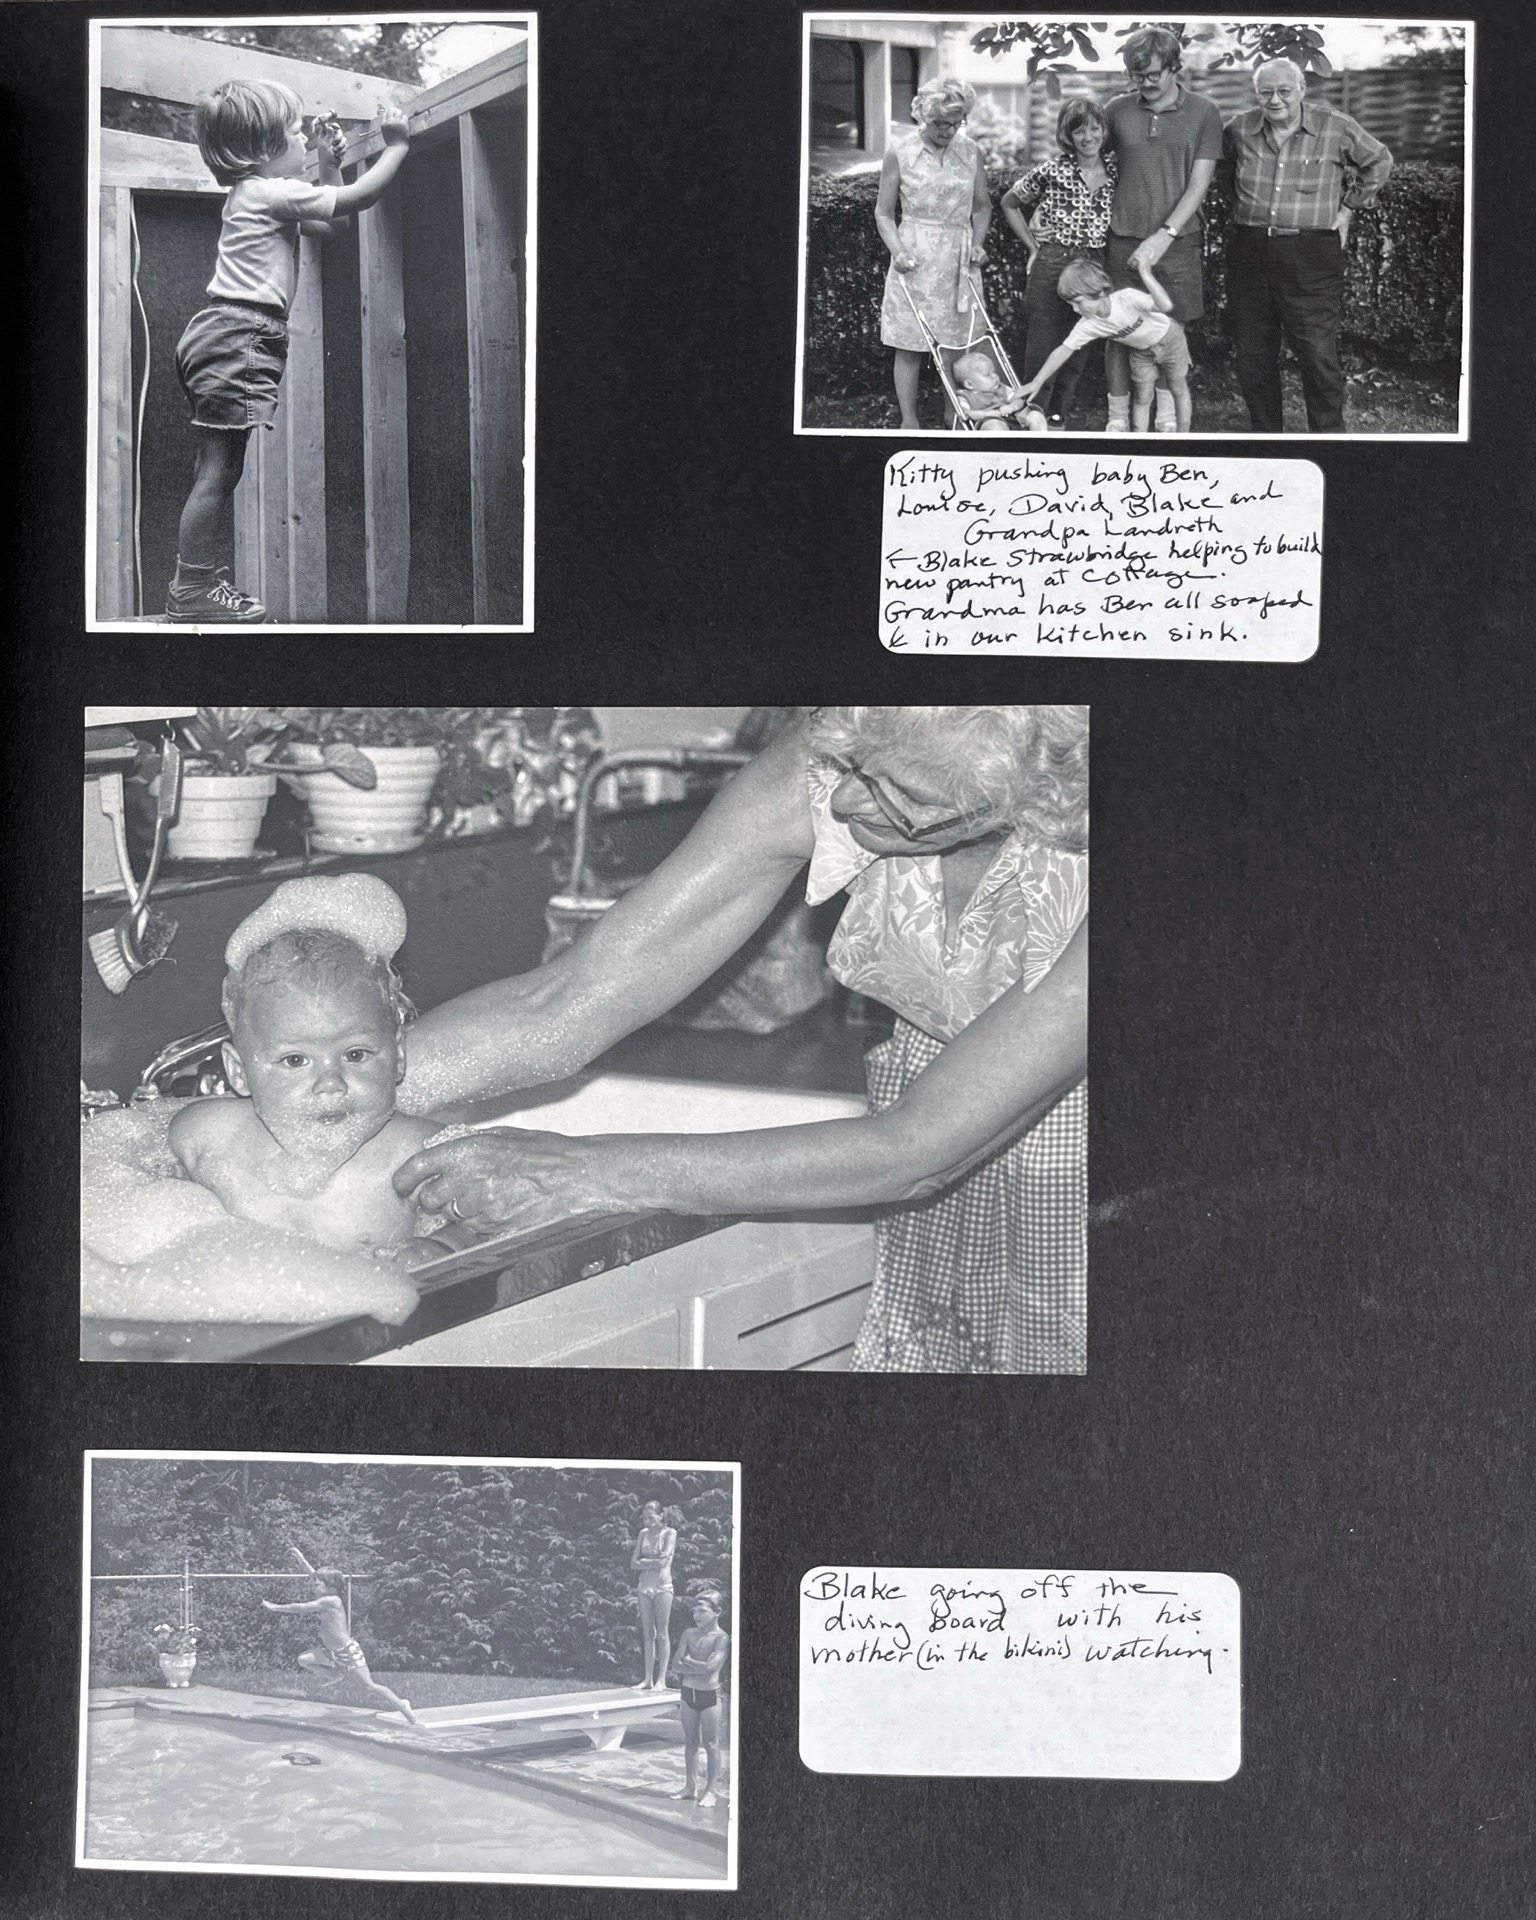 Kitty pushing baby Ben,
Louise, David, Blake and
Grandpa Landreth
← Blake Strawbridge helping to build
new pantry at Cottage.
Grandma has Ben all soaped
↙ in our kitchen sink.
Blake going off the
diving board with his
mother (in the bikini) watching.